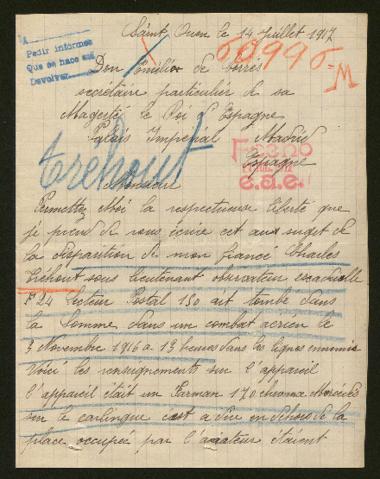 Saint Ouen le 14 Juillet 1917
A
Pedir informes
Que se hace
Devolver
60996
M
Don Emilio de Torrès
secrétaire particulier de sa
Magesté le Roi d'Espagne
Palais Impérial Madrid
Espagne
Trehout
e.a.e.
Monsieur
Permettez Moi la respectueuse liberté que
je prend de vous écrire cet aux sujet de
la disparition de mon fiancé Charles
Tréhout sous lieutenant observateur escadrille
F 24 secteur Postal 150 ait tombé dans
la Somme dans un combat aérien le
3 Novembre 1916 a 13 heures dans les lignes ennemie
Voici les renseignements sur l'appareil
l'appareil était un Farman 170 chevaux
sur le carlingue cest a dire en dehors de la
place occupée par l'aviateur étaient